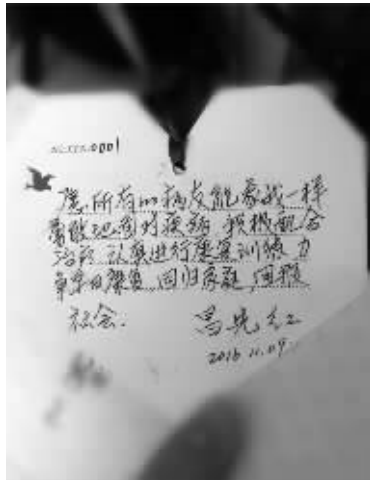 0001
愿所有的病友能像我一样
勇敢地面对疾病 积极配合
治疗 认真进行康复训练 力
争早日康复 回归家庭 回报
社会.
2016.11.09